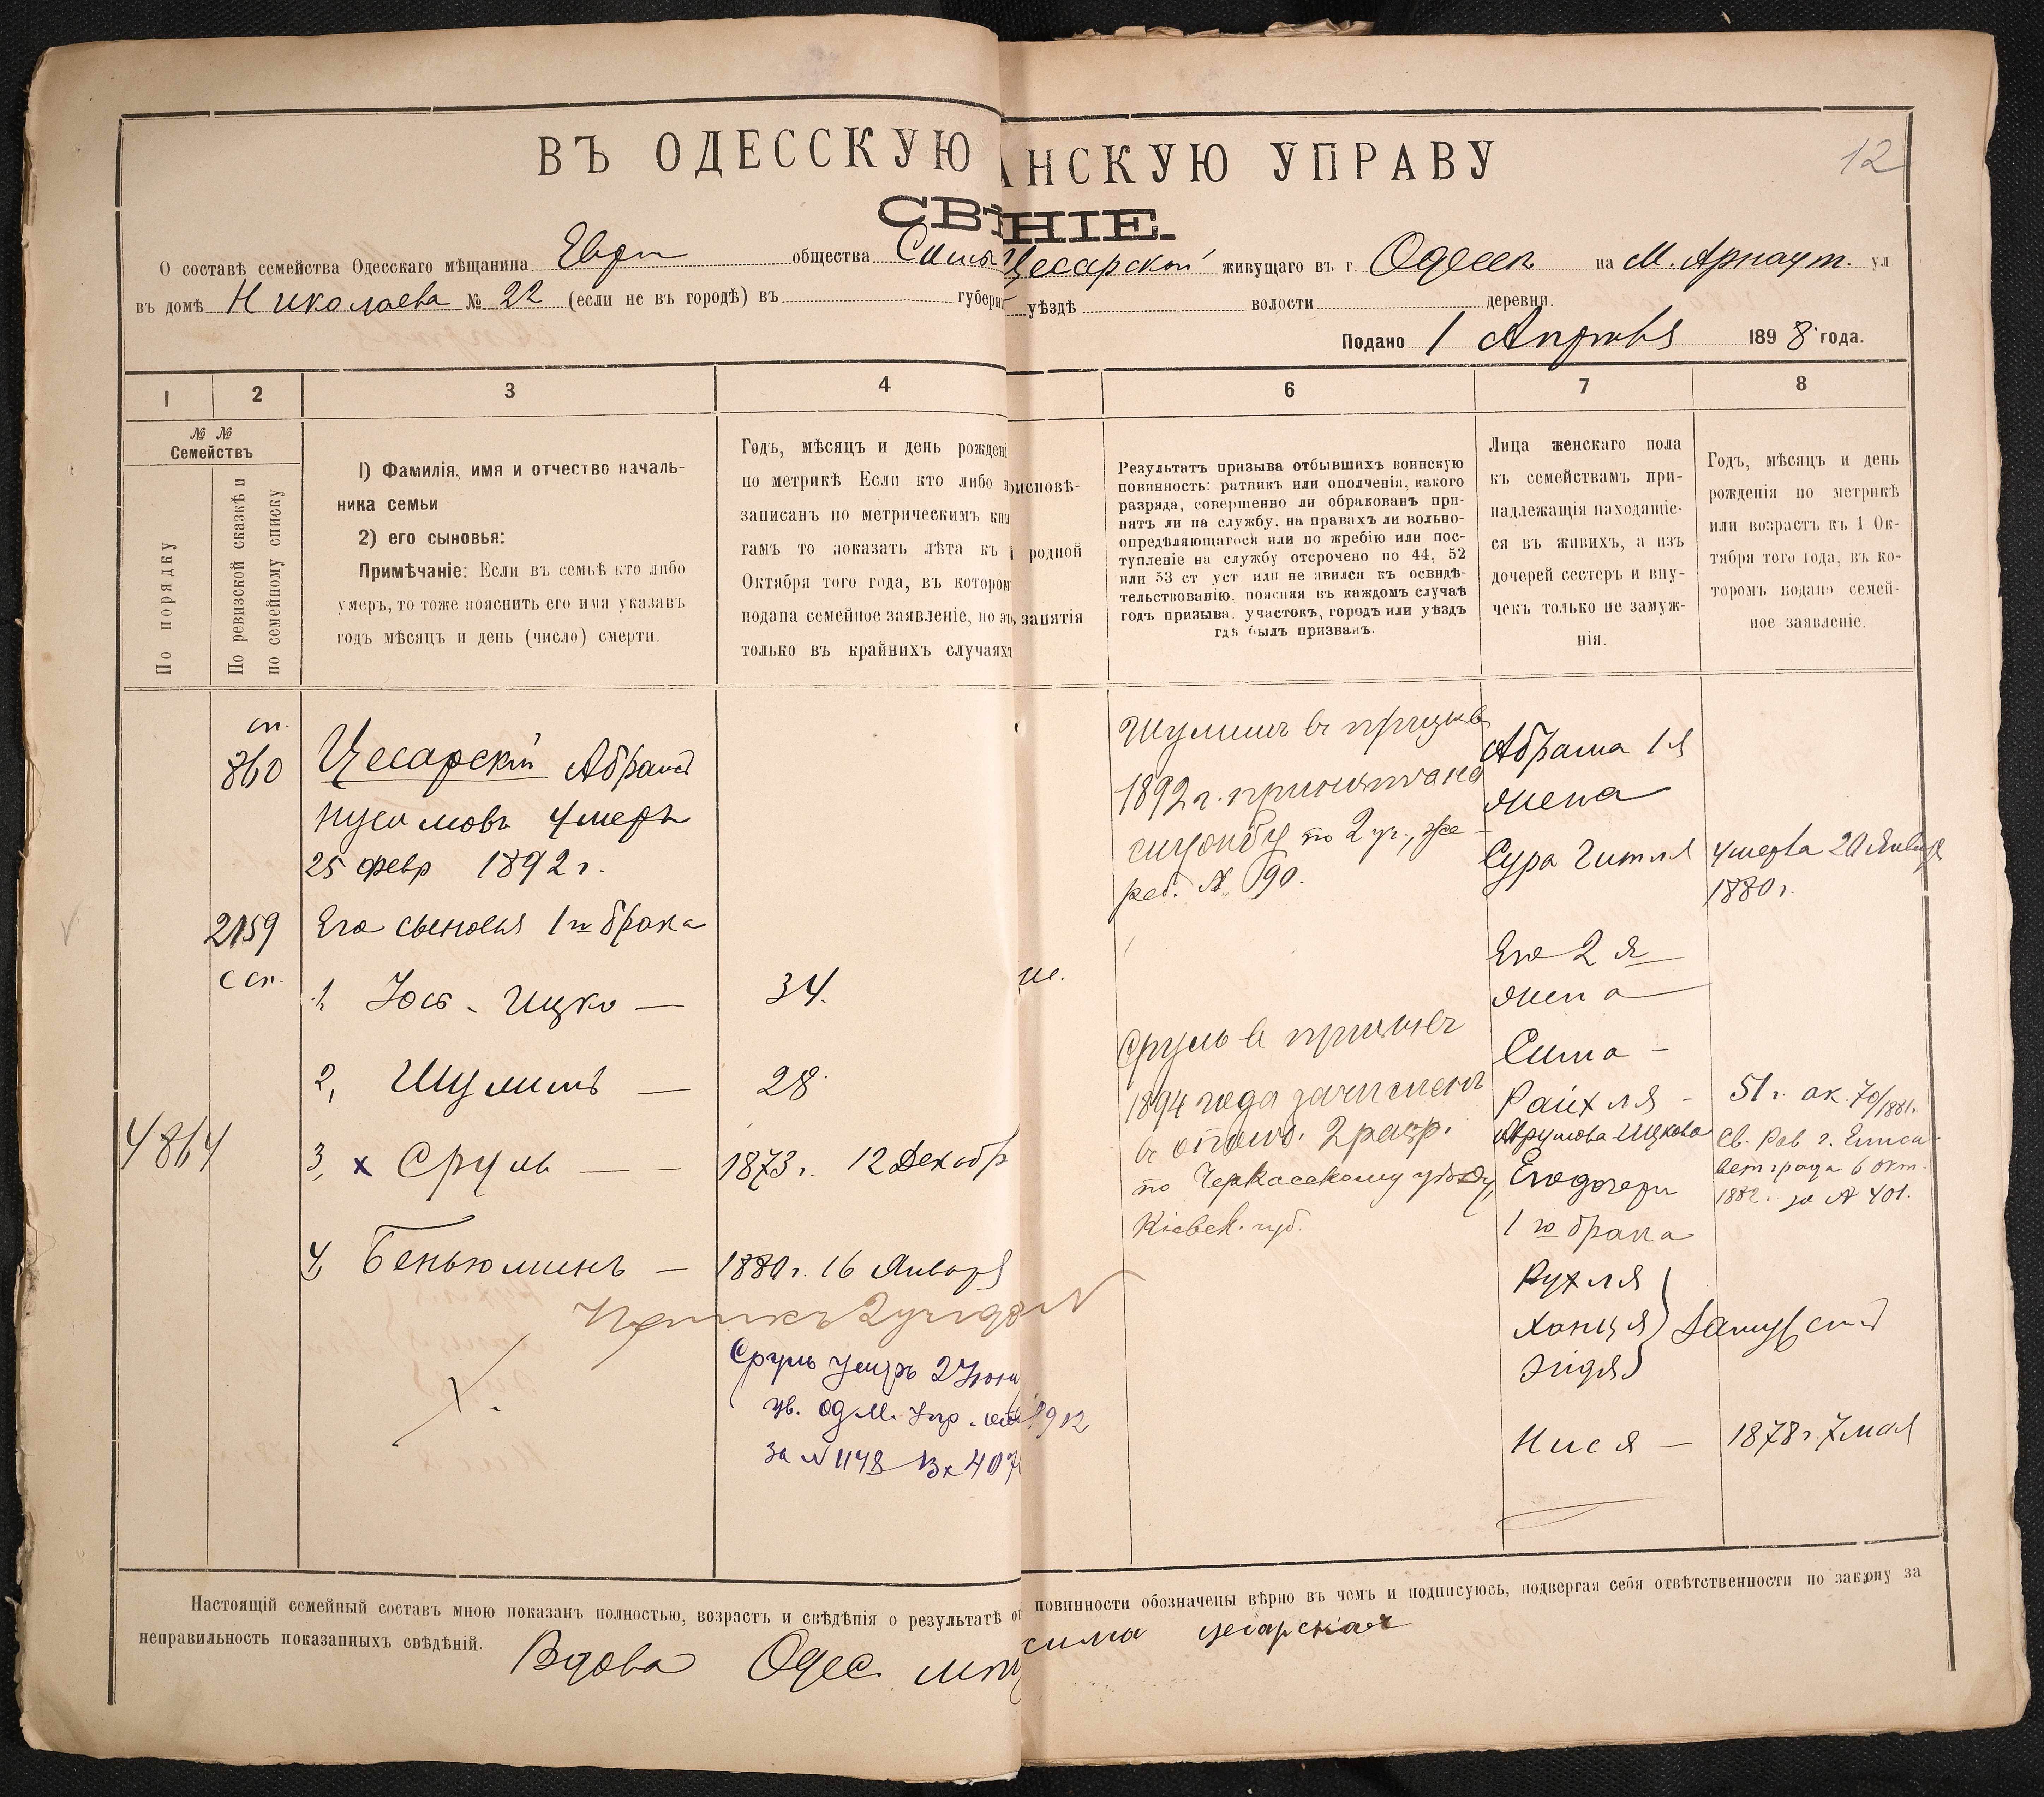 12
ВЪ ОДЕССКУЮ АНСКУЮ УПРАВУ
СВѢ НІЕ.
О составѣ семейства Одесскаго мѣщанина Евр общества Сима Цесарской живущаго въ г. Одессе на М. Арнаут. ул
въ домѣ Николаева № 22 (если не въ городѣ) въ губерні уѣздѣ волости деревни.
Подано 1 Апрѣля 1898 года.
1 2 3 4 6 7 8
№ №
Семействъ
По порядку
По ревизской сказкѣ и
по семейному списку
1) Фамилія, имя и отчество началь-
ника семьи
2) его сыновья:
Примѣчаніе: Если въ семьѣ кто либо
умеръ, то тоже пояснить его имя указавъ
годъ мѣсяцъ и день (число) смерти.
Годъ, мѣсяцъ и день рождені
по метрикѣ Если кто либо н
записанъ по метрическимъ кни
гамъ то показать лѣта къ 1
Октября того года, въ котором
подана семейное заявленіе, но эт
только въ крайнихъ случаяхъ
рисповѣ-
родной
занятія
Результатъ призыва отбывшихъ воинскую
повинность: ратникъ или ополченія, какого
разряда, совершенно ли обракованъ при-
нятъ ли на службу, на правахъ ли вольно-
опредѣляющагося или по жребію или пос-
тупленіе на службу отсрочено по 44, 52
или 53 ст уст. или не явился къ освидѣ-
тельствованію, поясняя въ каждомъ случаѣ
годъ призыва, участокъ, городъ или уѣздъ
гдѣ былъ призванъ.
Лица женскаго пола
къ семействамъ при-
надлежащія находящіе-
ся въ живихъ, а изъ
дочерей сестеръ и вну-
чекъ только не замуж-
нія.
Годъ, мѣсяцъ и день
рожденія по метрикѣ
или возрастъ къ 1 Ок-
тября того года, въ ко-
торомъ подано семей-
ное заявленіе.
сп.
860
Цесарскій Абрамъ
Нусимовъ Умеръ
25 февр 1892 г.
2159
с сп.
Его сыновья 1го брака
1, Іос. Ицко — 34.
2, Шулимъ — 28
4864
3, х Сруль — — 1873 г. 12 Декабр
4, Беньюминъ — 1880 г. 16 Января
Сруль умеръ 2 Іюня
ув. Од М. Упр. 1912
За № 1148 Вх 407
Шулимъ въ призыв
1892 г. принятъ на
службу по 2 уч., же-
реб. № 90.
Сруль в призывѣ
1894 года зачисленъ
въ ополч. 2 разр.
по Черкасскому уѣзду,
Кіевск. губ.
Абрама 1я
жена
Сура Гитля умерла 20 Января
1880 г.
Его 2я
жена
Сима —
Райхля — 51 г. ок. 70/1881.
Абрумова-Ицкова
Св. Рав г. Елиса-
ветграда 6 окт.
1882 г. за № 401.
Его дочери
1го брака
Рухля
Ханця
Эйдя
Замужем
Нися — 1878 г. 7 мая
Настоящій семейный составъ мною показанъ полностью, возрастъ и свѣдѣнія о результатѣ от повинности обозначены вѣрно въ чемъ и подписуюсь, подвергая себя отвѣтственности по закону за
неправильность показанныхъ свѣдѣній.
Вдова Одес. мѣщ сима цесарская